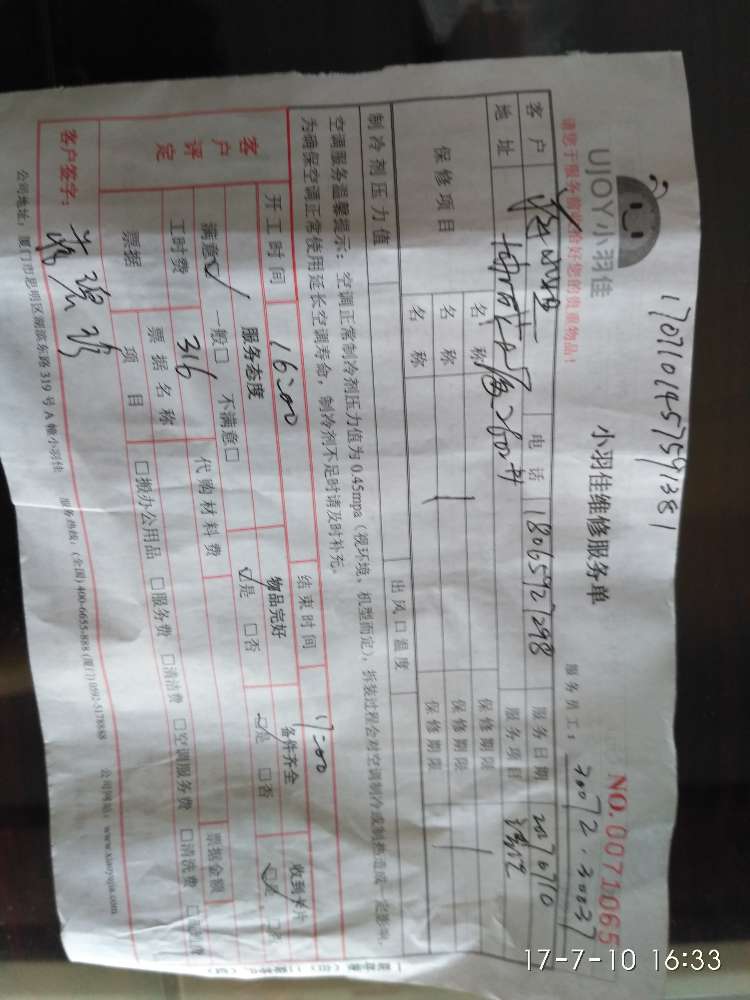 1707101457591381
UJOY小羽佳
小羽佳维修服务单
NO.0071065
请您于服务前收拾好您的贵重物品！
服务员工：30072.30037
客户
电话 18065927298
服务日期 20170710
地址
服务项目 清洗
保修项目
名称
保修期限
名称
保修期限
名称
保修期限
制冷剂压力值
出风口温度
空调服务温馨提示：空调正常制冷剂压力值为0.45mpa（视环境、机型而定），拆装过程会对空调制冷或制热造成一定影响。
为确保空调正常使用延长空调寿命，制冷剂不足时请及时补充。
开工时间 16:00
结束时间 17:00
客户评定
服务态度
物品完好
备件齐全
收到卡片
满意☑ 一般□ 不满意□
☑是 □否
☑是 □否
☑是
工时费 316
代购材料费
票据
票据名称
票据金额
项目
□搬办公用品 □服务费 □清洁费 □空调服务费 □清洗费
客户签字：
公司地址：厦门市思明区湖滨东路319号A幢小羽佳 服务热线：(全国)400-6655-888 (厦门)0592-5178888 公司网站：www.xiaoyujia.com
17-7-10 16:33